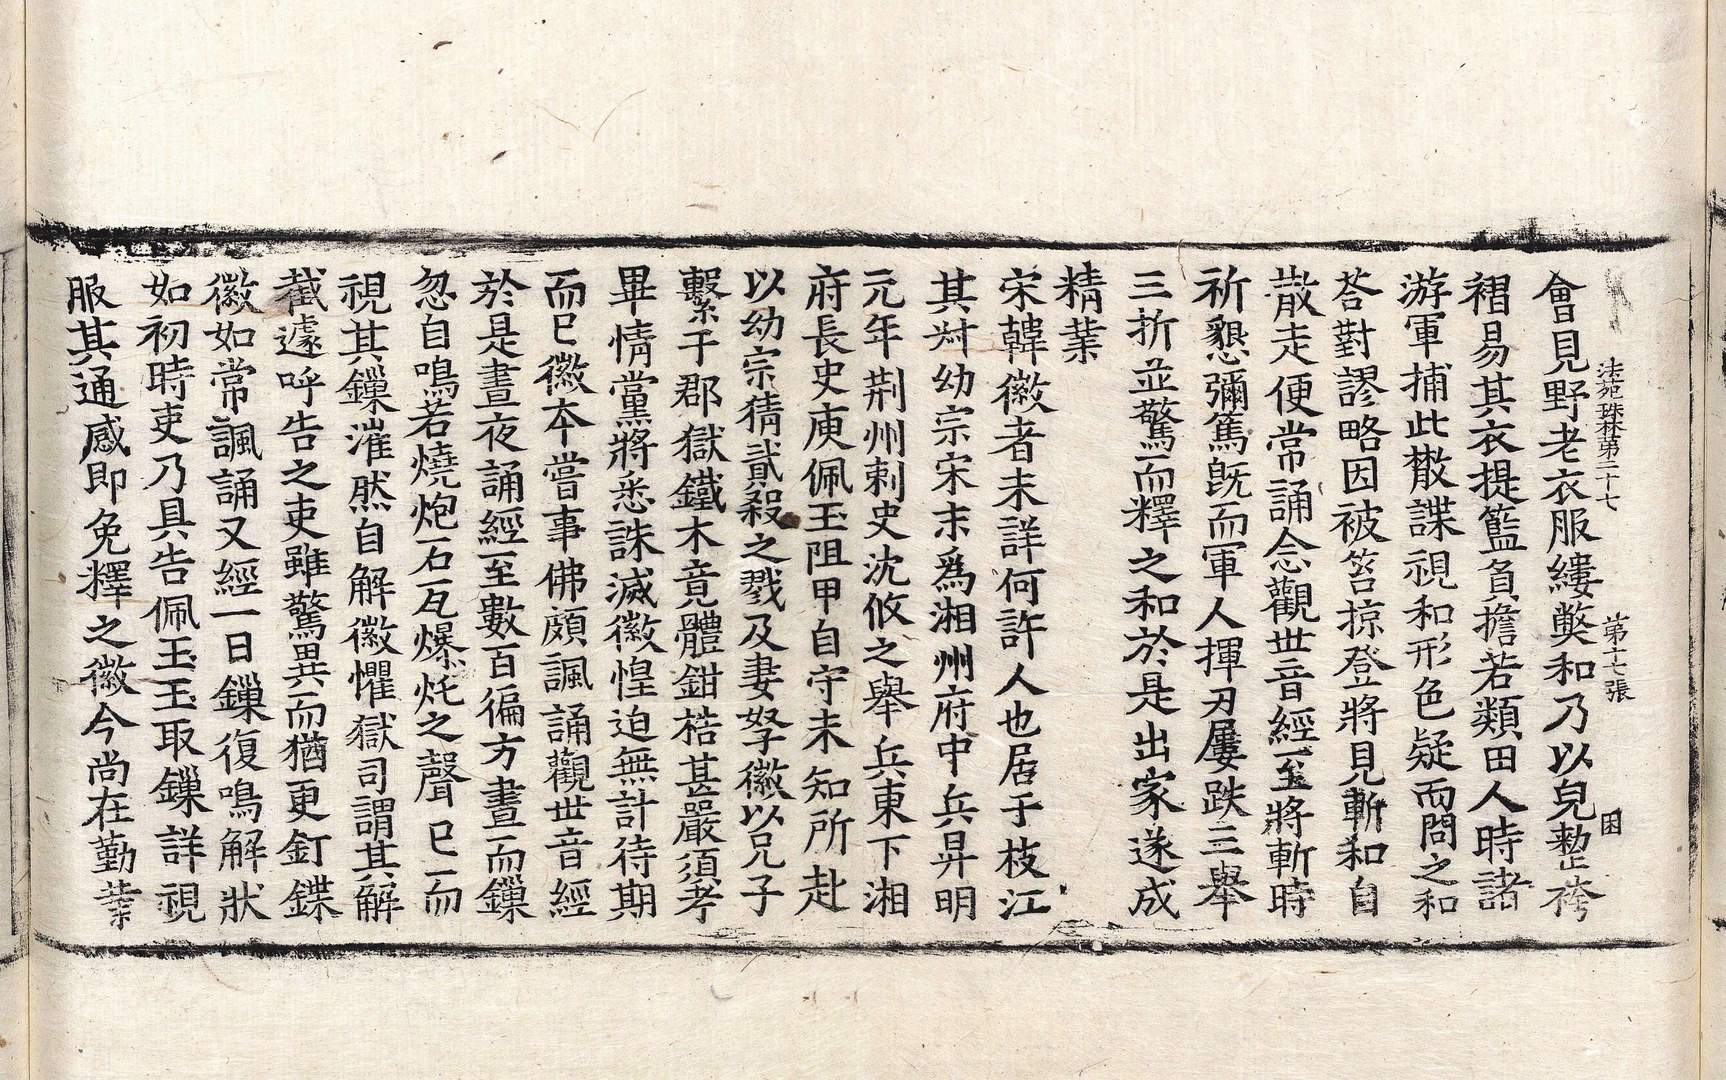 法苑珠林第二十七　第十七張　困
會見野老衣服縷獘和乃以皃整袴
褶易其衣提籃負擔若類田人時諸
游軍捕此散諜視和形色疑而問之和
荅對謬略因被笞掠登將見斬和自
散走便常誦念觀世音經至將斬時
祈懇彌篤旣而軍人揮刃屢跌三舉
三折並驚而釋之和於是出家遂成
精業
宋韓徽者未詳何許人也居于枝江
其叔幼宗宋末爲湘州府中兵昇明
元年荆州剌史沈攸之舉兵東下湘
府長史庾佩玉阻甲自守未知所赴
以幼宗猜貳殺之戮及妻孥徽以兄子
繫于郡獄鐵木竟體鉗梏甚嚴須考
畢情黨將悉誅滅徽惶迫無計待期
而已徽本嘗事佛頗諷誦觀世音經
於是晝夜誦經至數百徧方晝而鏁
忽自鳴若燒炮石瓦爆㶴之聲已而
視其鏁漼然自解徽懼獄司謂其解
截遽呼告之吏雖驚異而猶更釘鍱
徽如常諷誦又經一日鏁復鳴解狀
如初時吏乃具告佩玉玉取鏁詳視
服其通感即免釋之徽今尚在勤業